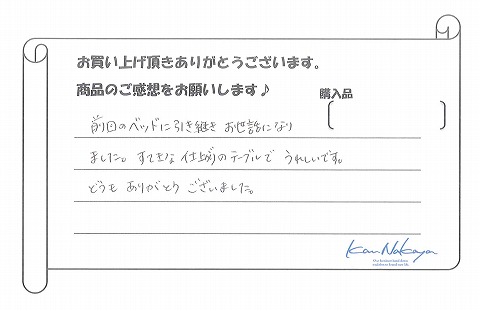 お買い上げ頂きありがとうございます。
商品のご感想をお願いします♪
購入品
前回のベッドに引き継き お世話になり
ました。すてきな 仕上がりのテーブルで うれしいです。
どうも ありがとう ございました。
Kan Nakaya